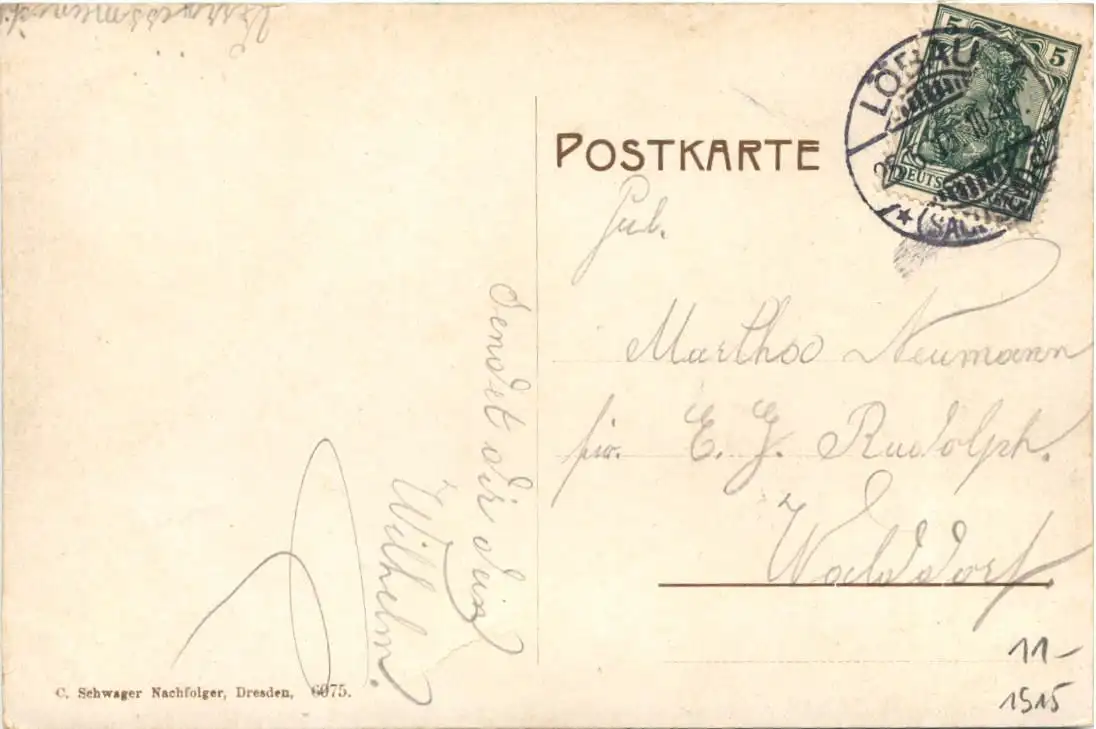 POSTKARTE
5 5
DEUTSCHES REICH
LÖBAU
(SACHSEN)
Martha Neumann
E. G. Rudolph.
Walddorf.
Sendet dir dein
Wilhelm.
C. Schwager Nachfolger, Dresden, 6975.
11-
1515